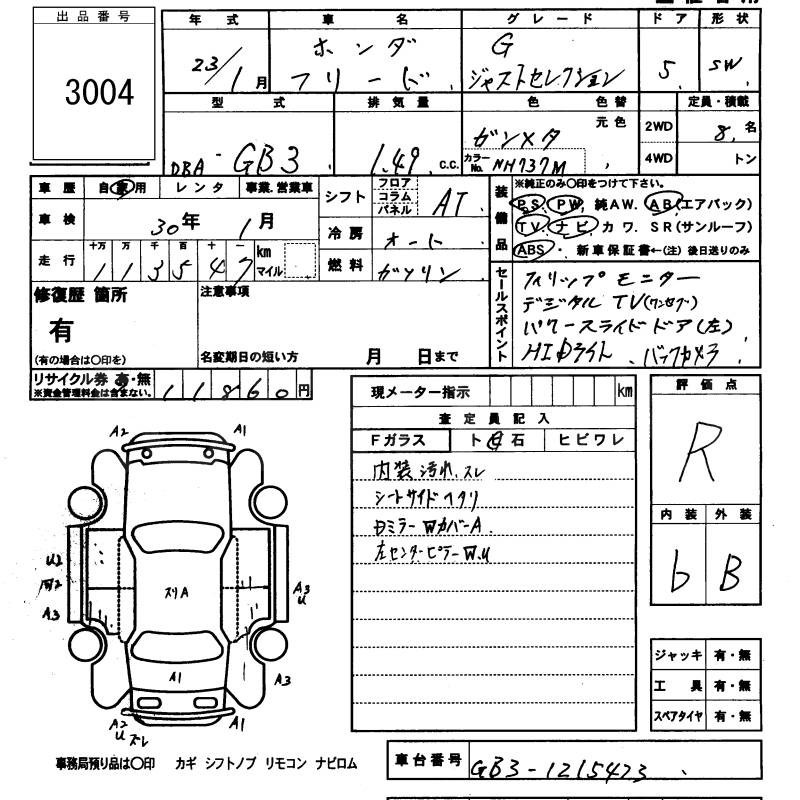 出品番号
3004
年式 車名 グレード ドア 形状
23/1月 ホンダ フリード G ジャストセレクション 5 SW
型式 排気量 色 色替 定員・積載
DBA-GB3 1.49 c.c. ガンメタ 元色 2WD 8名
カラーNo. NH737M 4WD トン
車歴 自家用 レンタ 事業.営業車
車検 30年 1月
走行 十万 万 千 百 十 一 km マイル
113547
シフト フロア コラム パネル AT
冷房 オート
燃料 ガソリン
装備品 ※純正のみ〇印をつけて下さい。
PS PW 純AW. AB(エアバック)
TV ナビ カワ. SR(サンルーフ)
ABS 新車保証書←(注)後日送りのみ
修復歴 箇所
有
(有の場合は〇印を)
注意事項
名変期日の短い方 月 日まで
セールスポイント
フィリップモニター
デジタルTV(ワンセグ)
パワースライドドア(左)
HIDライト、バックカメラ
リサイクル券 有・無 11860円
※資金管理料金は含まない。
現メーター指示 km
査定員記入
Fガラス ト石 ヒビワレ
内装 汚れ、スレ
シートサイド ヘタリ
Dミラー WカバーA
左センターピラーW.U
評価点
R
内装 外装
b B
A2 A1
U2
A3
A3 U
スリA
A1
A3
A2 U スレ
A1
ジャッキ 有・無
工具 有・無
スペアタイヤ 有・無
事務局預り品は〇印 カギ シフトノブ リモコン ナビロム
車台番号 GB3-1215423